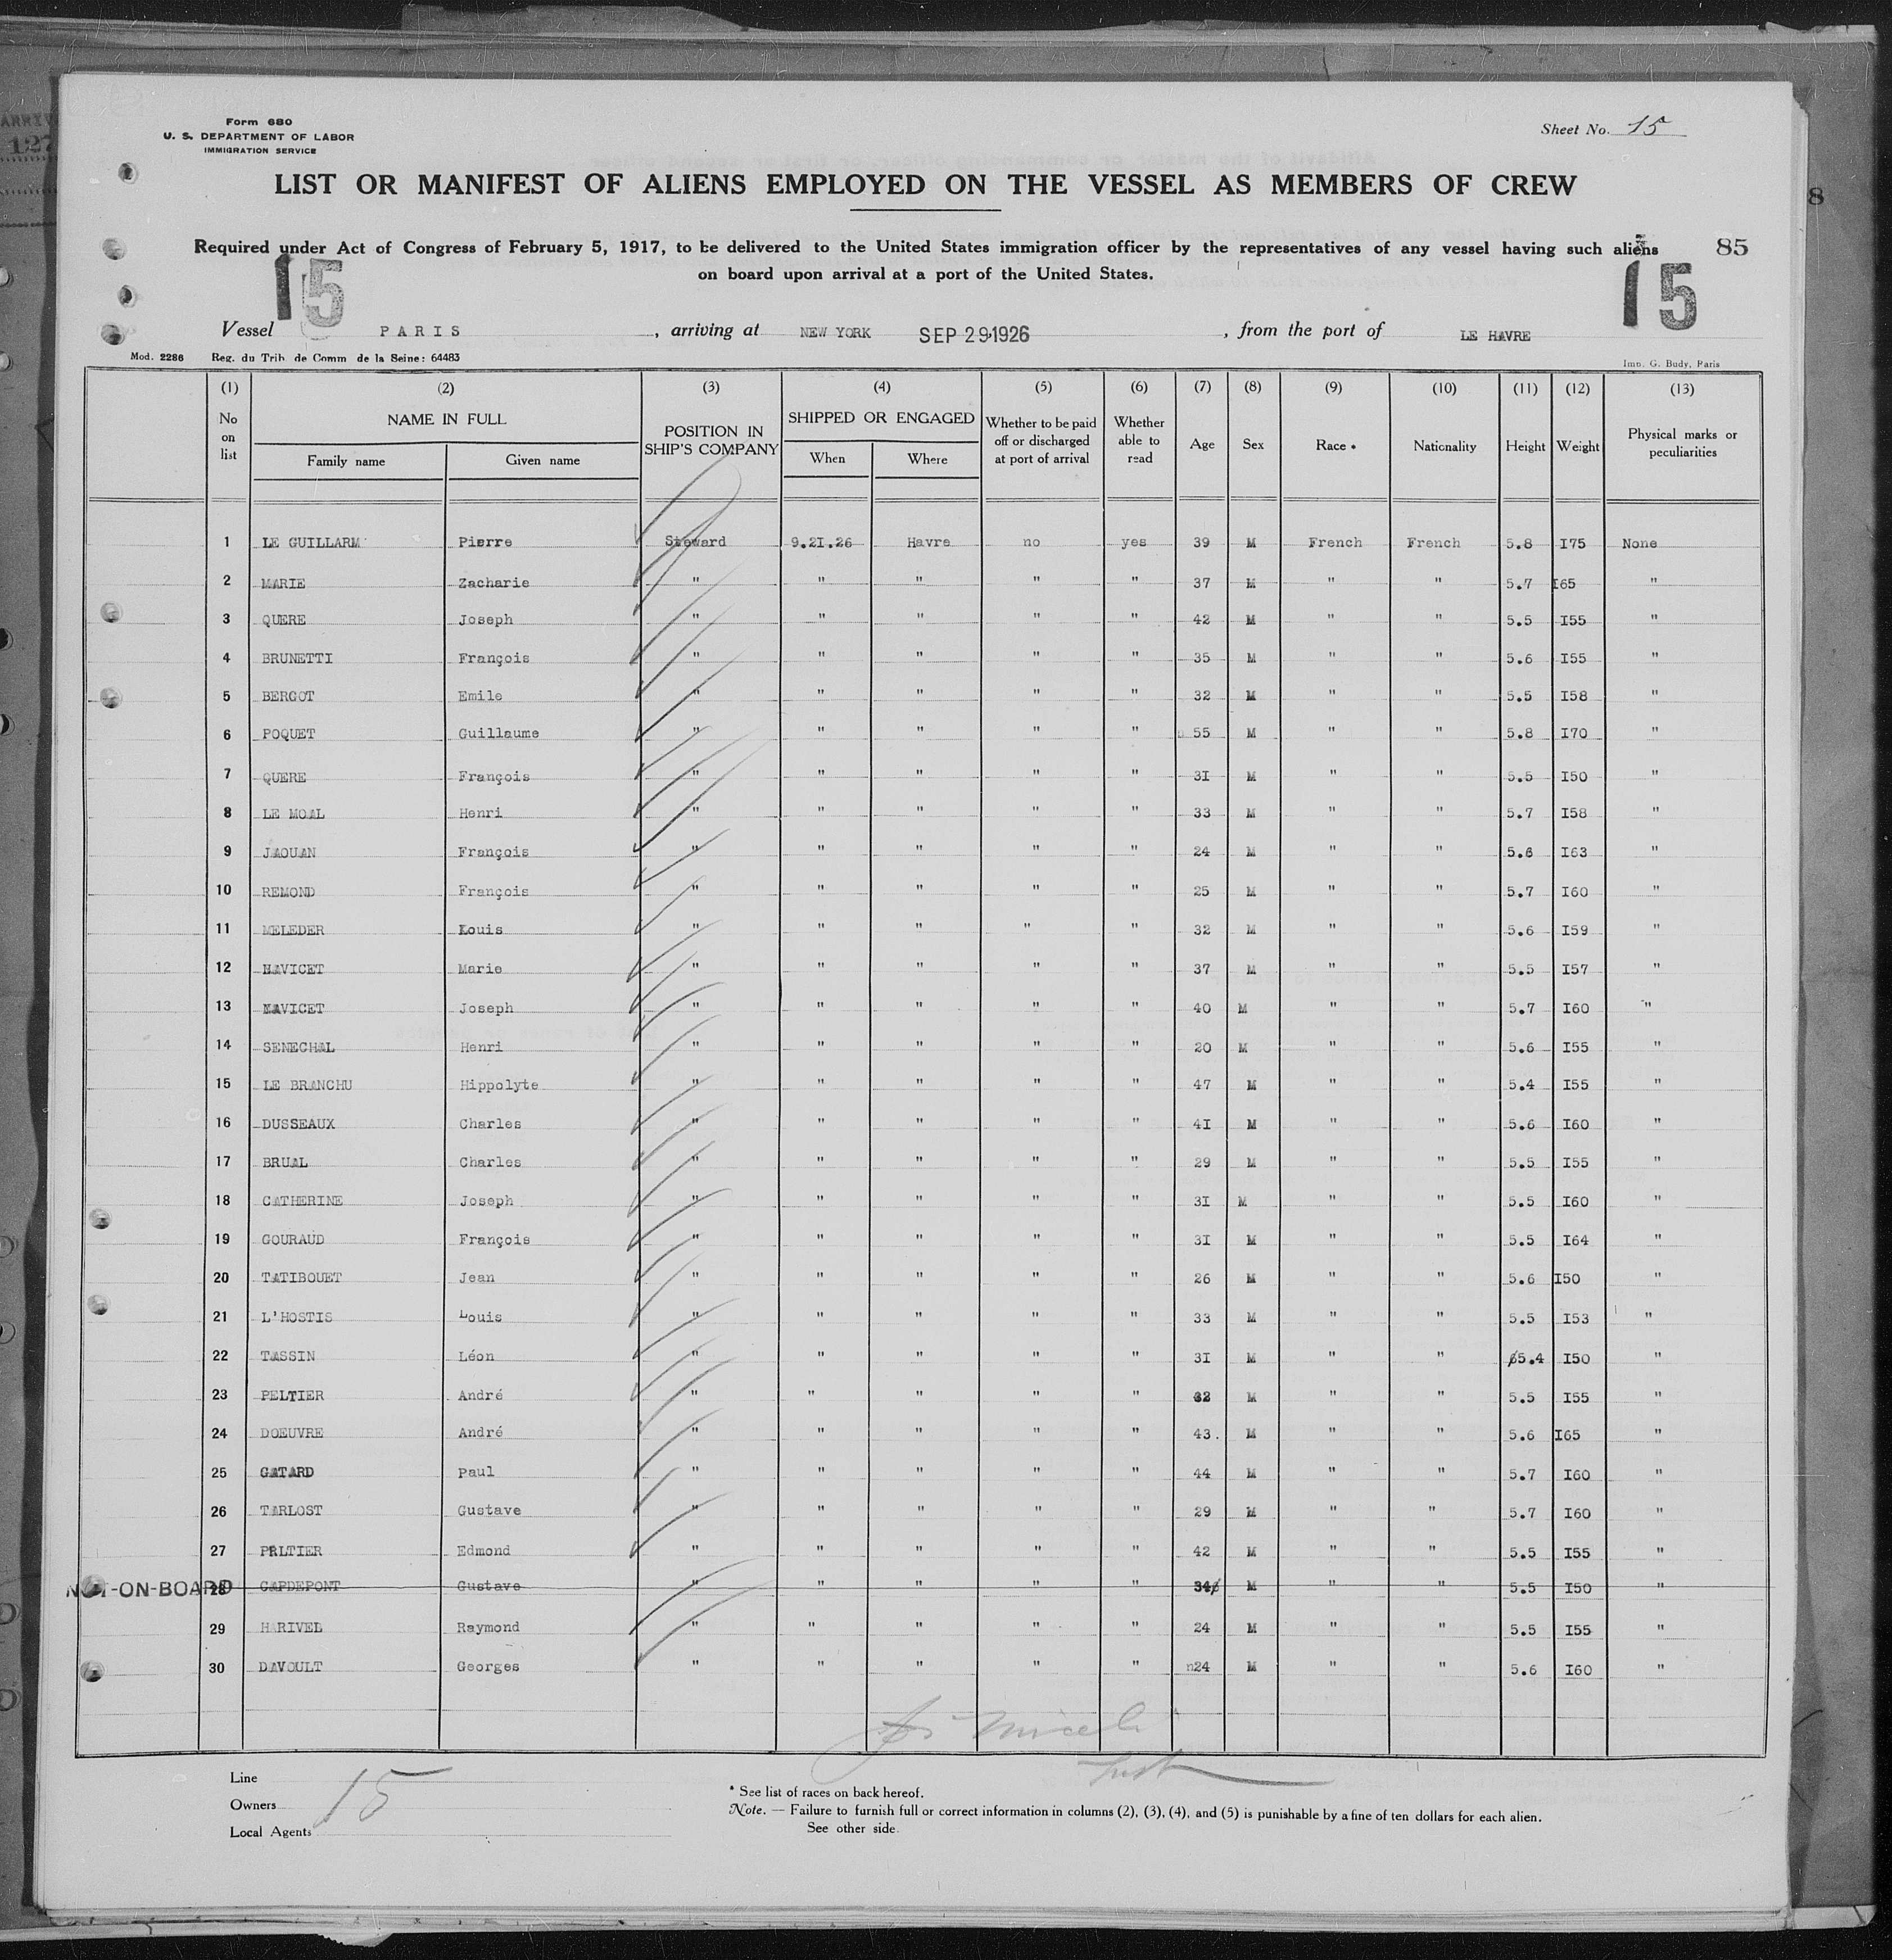 Form 680
U. S. DEPARTMENT OF LABOR
IMMIGRATION SERVICE
Sheet No. 15
LIST OR MANIFEST OF ALIENS EMPLOYED ON THE VESSEL AS MEMBERS OF CREW
Required under Act of Congress of February 5, 1917, to be delivered to the United States immigration officer by the representatives of any vessel having such aliens 85
on board upon arrival at a port of the United States.
15 15
Vessel PARIS, arriving at NEW YORK SEP 29 1926, from the port of LE HAVRE
Mod. 2286 Reg. du Trib. de Comm de la Seine: 64483 Imp. G. Budy, Paris
(1) (2) (3) (4) (5) (6) (7) (8) (9) (10) (11) (12) (13)
No on list NAME IN FULL POSITION IN SHIP'S COMPANY SHIPPED OR ENGAGED Whether to be paid off or discharged at port of arrival Whether able to read Age Sex Race * Nationality Height Weight Physical marks or peculiarities
Family name Given name When Where
1 LE GUILLARM Pierre Steward 9.21.26 Havre no yes 39 M French French 5.8 I75 None
2 MARIE Zacharie " " " " " 37 M " " 5.7 I65 "
3 QUERE Joseph " " " " " 42 M " " 5.5 I55 "
4 BRUNETTI François " " " " " 35 M " " 5.6 I55 "
5 BERGOT Emile " " " " " 32 M " " 5.5 I58 "
6 POQUET Guillaume " " " " " 55 M " " 5.8 I70 "
7 QUERE François " " " " " 3I M " " 5.5 I50 "
8 LE MOAL Henri " " " " " 33 M " " 5.7 I58 "
9 JAOUAN François " " " " " 24 M " " 5.6 I63 "
10 REMOND François " " " " " 25 M " " 5.7 I60 "
11 MELEDER Louis " " " " " 32 M " " 5.6 I59 "
12 HAVICET Marie " " " " " 37 M " " 5.5 I57 "
13 NAVICET Joseph " " " " " 40 M " " 5.7 I60 "
14 SENECHAL Henri " " " " " 20 M " " 5.6 I55 "
15 LE BRANCHU Hippolyte " " " " " 47 M " " 5.4 I55 "
16 DUSSEAUX Charles " " " " " 4I M " " 5.6 I60 "
17 BRUAL Charles " " " " " 29 M " " 5.5 I55 "
18 CATHERINE Joseph " " " " " 3I M " " 5.5 I60 "
19 GOURAUD François " " " " " 3I M " " 5.5 I64 "
20 TATIBOUET Jean " " " " " 26 M " " 5.6 I50 "
21 L'HOSTIS Louis " " " " " 33 M " " 5.5 I53 "
22 TASSIN Léon " " " " " 3I M " " 5.4 I50 "
23 PELTIER André " " " " " 32 M " " 5.5 I55 "
24 DOEUVRE André " " " " " 43. M " " 5.6 I65 "
25 GATARD Paul " " " " " 44 M " " 5.7 I60 "
26 TARLOST Gustave " " " " " 29 M " " 5.7 I60 "
27 PELTIER Edmond " " " " " 42 M " " 5.5 I55 "
NOT-ON-BOARD 28 CAPDEPONT Gustave " " " " " 34 M " " 5.5 I50 "
29 HARIVEL Raymond " " " " " 24 M " " 5.5 I55 "
30 DAVOULT Georges " " " " " 24 M " " 5.6 I60 "
Line
Owners
Local Agents
15
* See list of races on back hereof.
Note. — Failure to furnish full or correct information in columns (2), (3), (4), and (5) is punishable by a fine of ten dollars for each alien.
See other side.